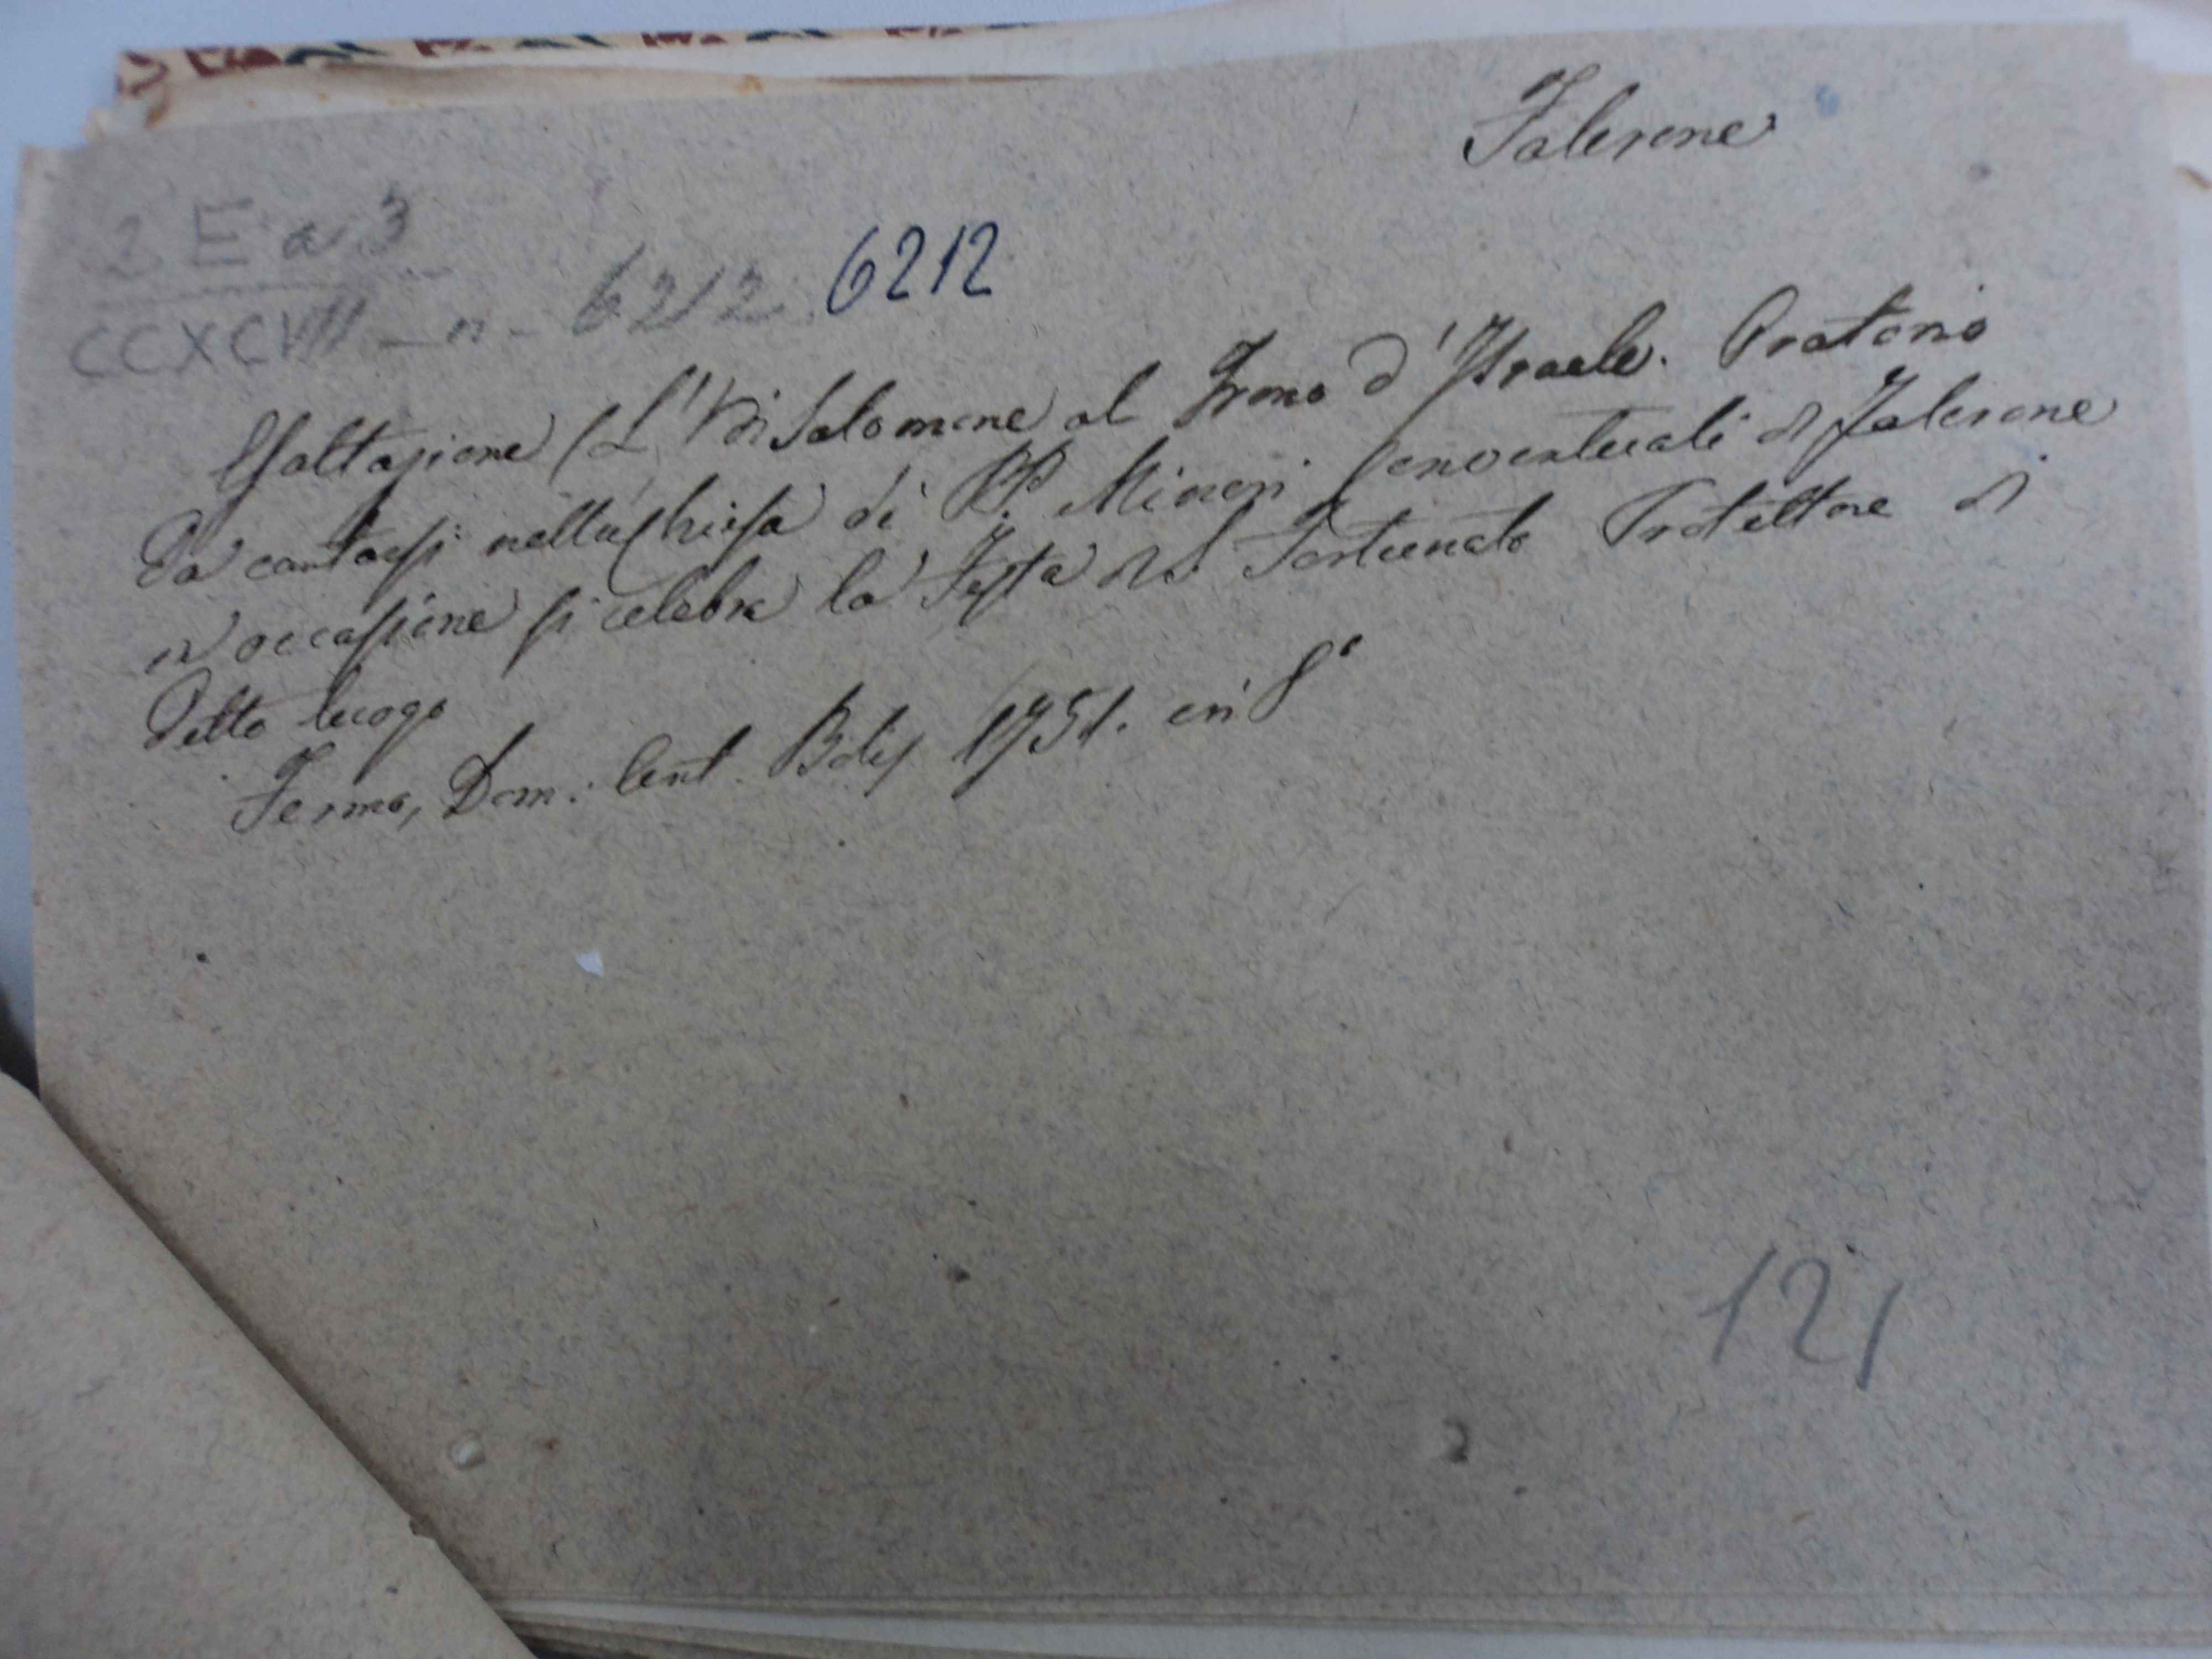 Falerone
2 E a 3
CCXCVIII - n - 6212 6212
Esaltazione (L') di Salomone al Trono d'Israele. Oratorio
da cantarsi nella Chiesa di PP. Minori Conventuali di Falerone
in occasione si celebra la Festa di S. Fortunato Protettore di
detto luogo
Fermo, Dom: Ant. Bolis 1751. in 8°
121